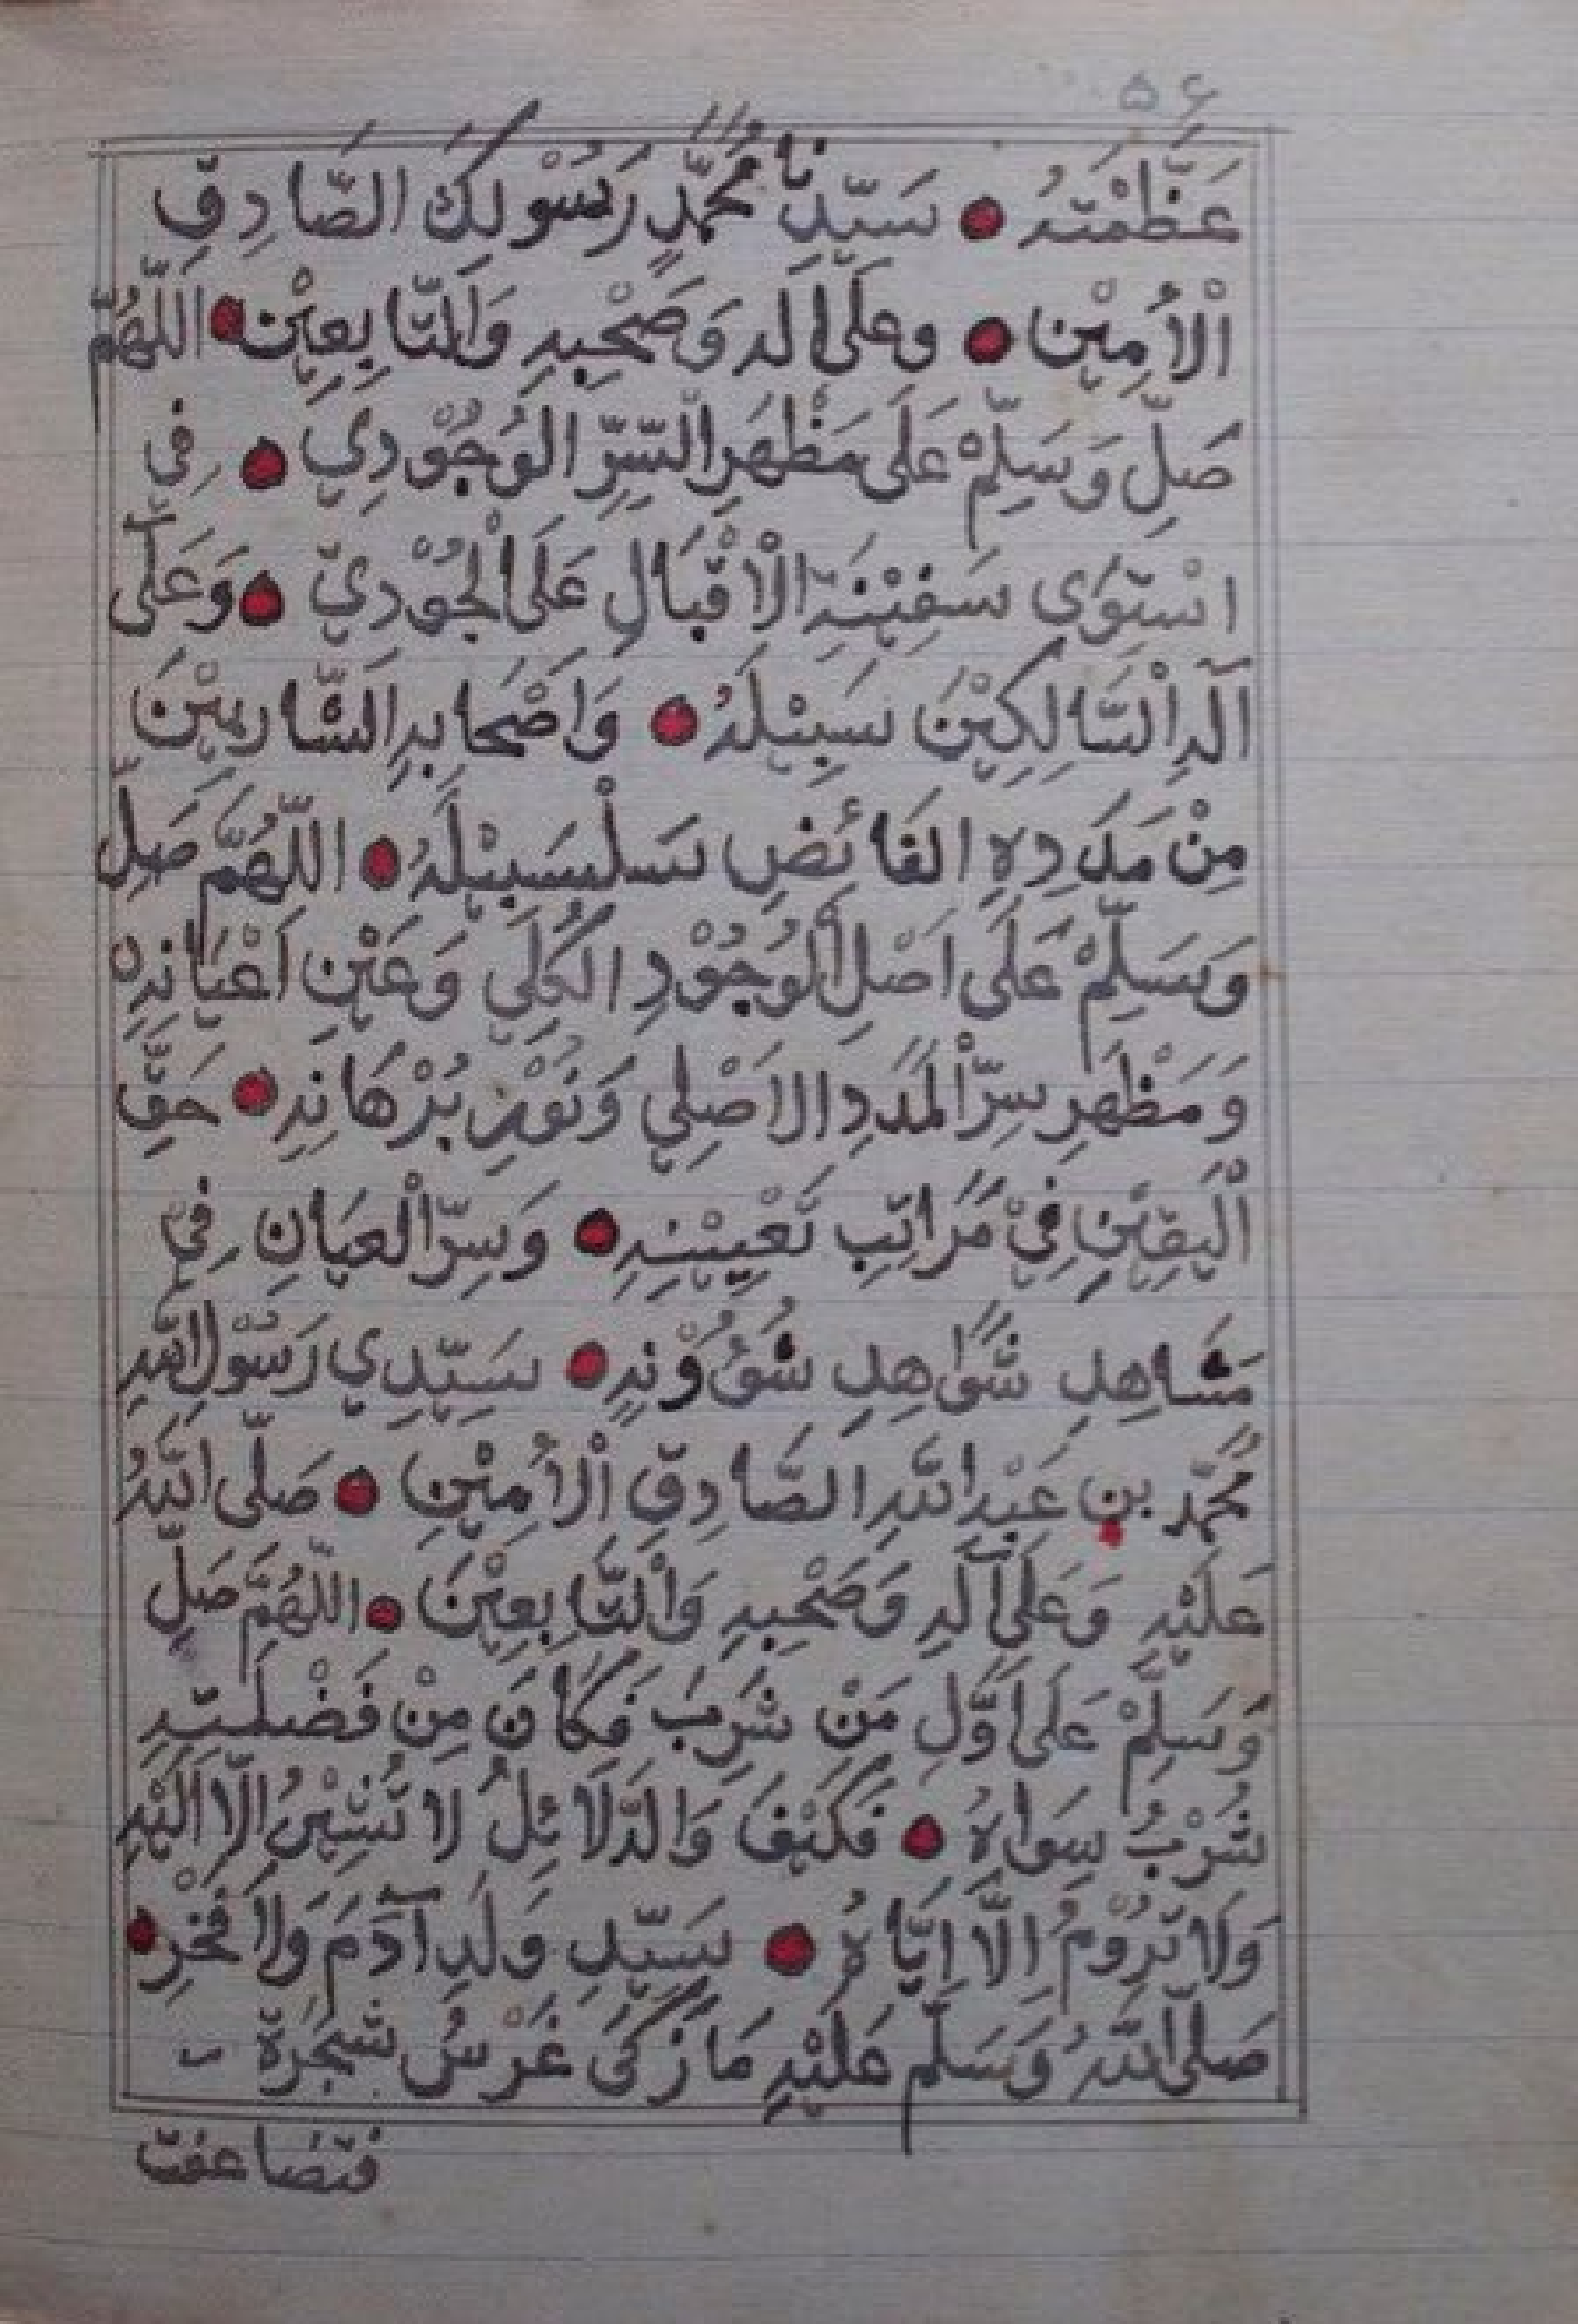 ۵۶
عَظَمَتُهُ ● سَيِّدِنَا مُحَمَّدٍ رَسُوْلِكَ الصَّادِقِ
الْاَمِيْنِ ● وَعَلَى اٰلِهِ وَصَحْبِهِ وَالتَّابِعِيْنَ ● اَللّٰهُمَّ
صَلِّ وَسَلِّمْ عَلَى مَظْهَرِ السِّرِّ الوُجُوْدِيِ ● فِي
اسْتِوَاىِ سَفِيْنَةِ الْاِقْبَالِ عَلَى الْجُوْدِيِّ ● وَعَلٰٓى
آلِهِ السَّالِكِيْنَ سَبِيْلَهُ ● وَاَصْحَابِهِ الشَّارِبِيْنَ
مِنْ مَدَدِهِ الفَائِضِ سَلْسَبِيْلَهُ ● اللّٰهُمَّ صَلِّ
وَسَلِّمْ عَلَى اَصْلِ الْوُجُوْدِ الكُلِّي وَعَيْنِ اَعْيَانِهِ ه
وَمَظْهَرِ سِرِّ الْمَدَدِ الاَصْلِي وَنُوْرِ بُرْهَانِهِ ● حَقِّ
الْيَقِيْنِ فِيْ مَرَاتِبِ تَعْيِيْنِهِ ● وَسِرِّ الْعِيَانِ فِيْ
مَشَاهِدِ شَوَاهِدِ شُؤُوْنِهِ ● سَيِّدِي رَسُوْلِ اللّٰهِ
مُحَمَّد بن عَبْدِ اللّٰهِ الصَّادِقِ الْاَمِيْنِ ● صَلَّى اللّٰهُ
عَلَيْهِ وَعَلَى آلِهِ وَصَحْبِهِ وَالتَّابِعِيْنَ ● اللّٰهُمَّ صَلِّ
وَسَلِّمْ عَلَى اَوَّلِ مَنْ شَرِبَ فَكَانَ مِنْ فَضْلَتِهِ
شُرْبُ سِوَاهُ ● فَكَيْفَ وَالدَّلَائِلُ لَا تُشِيْرُ اِلَّا اِلَيْهِ
وَلَا تَرُوْمُ اِلَّا اِيَّاهُ ● سَيِّدِ وَلَدِ آدَمَ وَلَا فَخْرِ ●
صَلَّى اللّٰهُ وَسَلَّم عَلَيْهِ مَا زَكَى غَرْسُ شَجَرَة
فتضاعفت